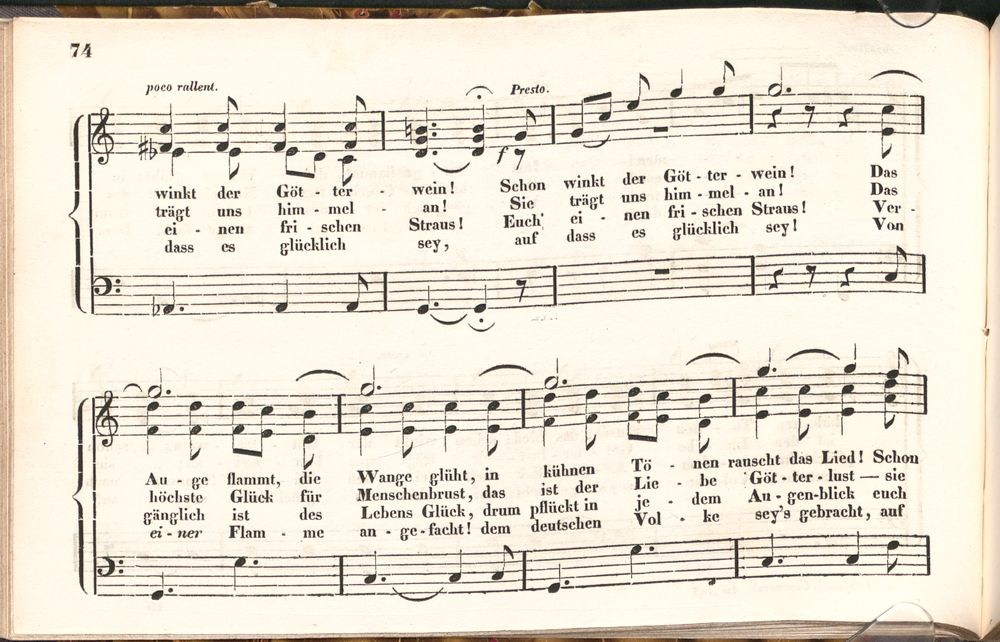 74
poco rallent.
Presto.
f
winkt der Göt - ter - wein! Schon winkt der Göt - ter - wein! Das
trägt uns him - mel - an! Sie trägt uns him - mel - an! Das
ei - nen fri - schen Straus! Euch ei - nen fri - schen Straus! Ver -
dass es glücklich sey, auf dass es glücklich sey! Von
Au - ge flammt, die Wange glüht, in kühnen Tö - nen rauscht das Lied! Schon
höchste Glück für Menschenbrust, das ist der Lie - be Göt - ter - lust — sie
gänglich ist des Lebens Glück, drum pflückt in je - dem Au - gen-blick euch
ei - ner Flam - me an - ge - facht! dem deutschen Vol - ke sey's gebracht, auf